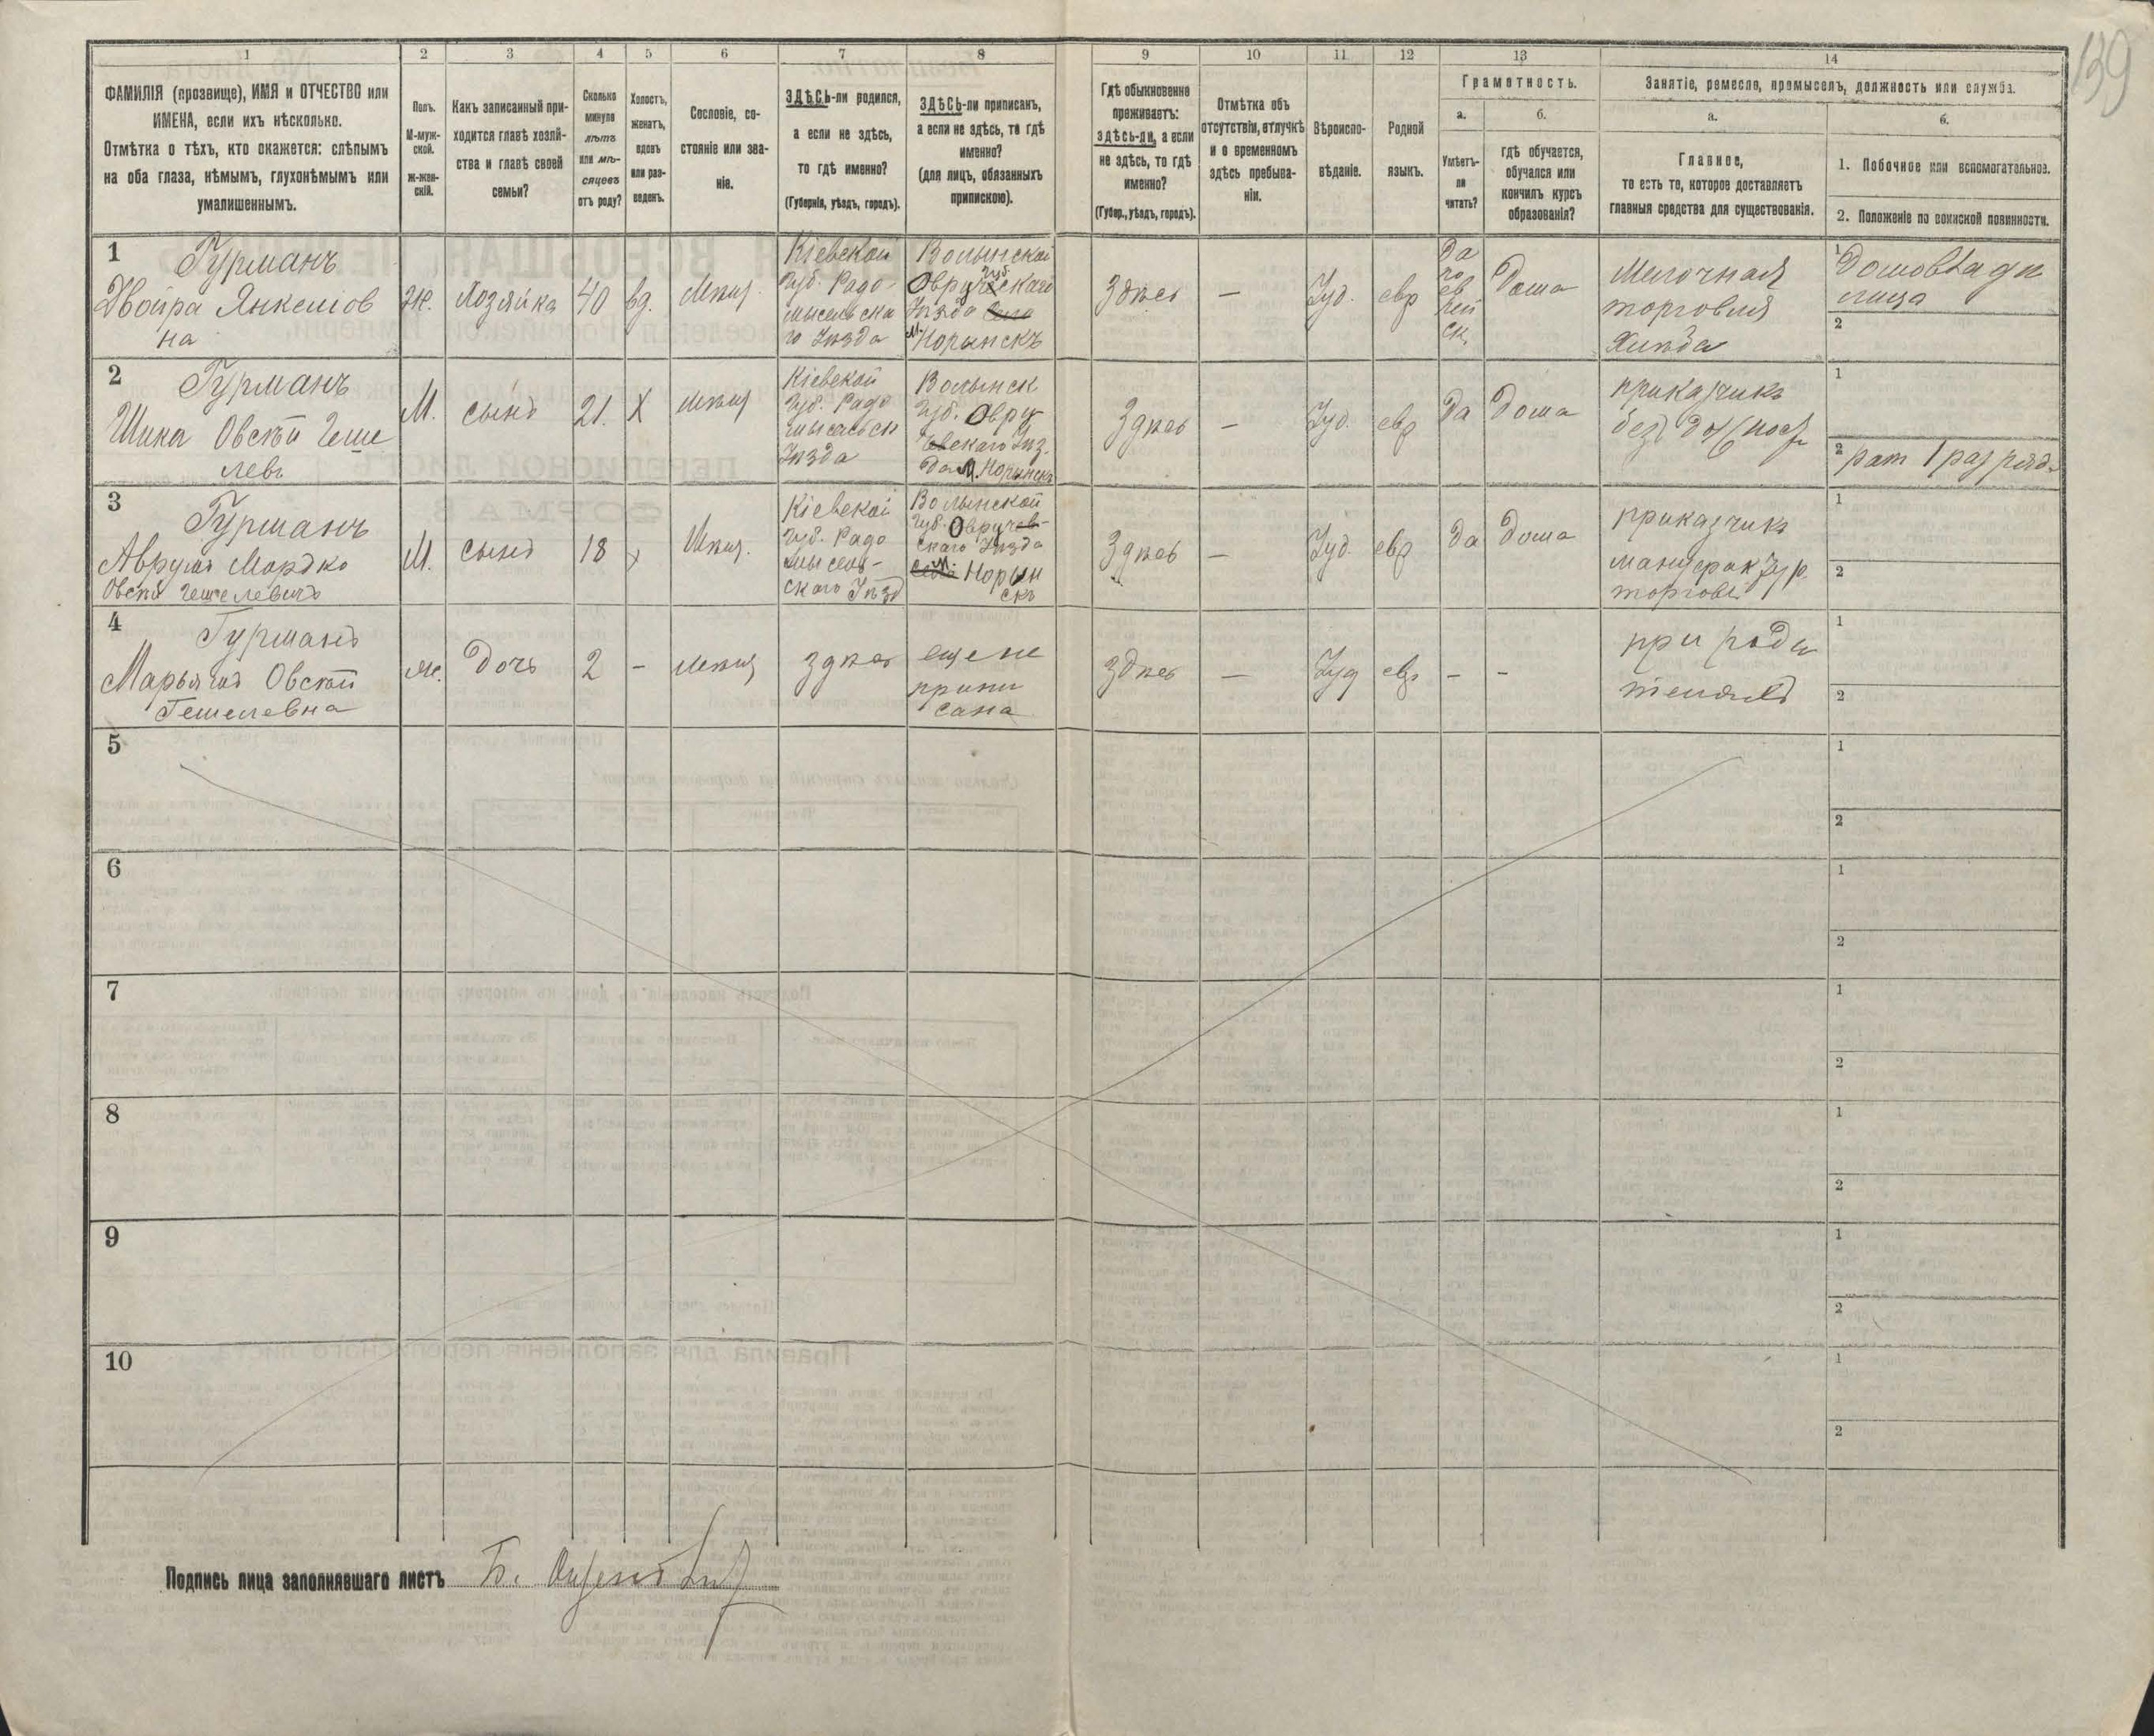 139
1
2
3
4
5
6
7
8
9
10
11
12
13
14
ФАМИЛІЯ (прозвище), ИМЯ и ОТЧЕСТВО или
ИМЕНА, если ихъ нѣсколько.
Отмѣтка о тѣхъ, кто окажется: слѣпымъ
на оба глаза, нѣмымъ, глухонѣмымъ или
умалишеннымъ.
Полъ.
М-муж-
ской.
ж-жен-
скій.
Какъ записанный при-
ходится главѣ хозяй-
ства и главѣ своей
семьи?
Сколько
минуло
лѣтъ
или мѣ-
сяцевъ
отъ роду?
Холостъ,
женатъ,
вдовъ
или раз-
веденъ.
Сословіе, со-
стояніе или зва-
ніе.
ЗДѢСЬ-ли родился,
а если не здѣсь,
то гдѣ именно?
(Губернія, уѣздъ, городъ).
ЗДѢСЬ-ли приписанъ,
а если не здѣсь, то гдѣ
именно?
(для лицъ, обязанныхъ
припискою).
Гдѣ обыкновенно
проживаетъ:
здѣсь-ли, а если
не здѣсь, то гдѣ
именно?
(Губер., уѣздъ, городъ).
Отмѣтка объ
отсутствіи, отлучкѣ
и о временномъ
здѣсь пребыва-
ніи.
Вѣроиспо-
вѣданіе.
Родной
языкъ.
Грамотность.
а.
Умѣетъ-
ли
читать?
б.
гдѣ обучается,
обучался или
кончилъ курсъ
образованія?
Занятіе, ремесло, промыселъ, должность или служба.
а.
Главное,
то есть то, которое доставляетъ
главныя средства для существованія.
б.
1. Побочное или вспомогательное.
2. Положеніе по воинской повинности.
1
Гурманъ
Двойра Янкелов
на
Ж.
Хозяйка
40
вд.
Мѣщ.
Кіевской
Губ. Радо-
мысльска
го Уѣзда
Волынской
Губ
Овручскаго
Уѣзда
м. Норинскъ
Здѣсь
—
Іуд.
евр
Да
по
ев
рей
ск.
Дома
Мелочная
торговля
Хлѣба
1
Домовлады
лица
2
2
Гурманъ
Шика Овсѣй Геше
левъ
М.
сынъ
21.
Х
мѣщ
Кіевской
Губ. Радо
мысльск
Уѣзда
Волынск
Губ. Овру
скаго Уѣз.
да м. Норинскъ
Здѣсь
—
Іуд.
евр
Да
Дома
приказчикъ
без
1
2 рат 1 разряд.
3
Гурманъ
Аврумъ Мордко
Овсѣй Гешелевичъ
М.
сынъ
18
х
Мѣщ.
Кіевской
Губ. Радо
мысль-
скаго Уѣзд
Волынской
Губ. Овруч-
скаго Уѣзда
м. Норин
скъ
Здѣсь
—
Іуд.
евр
Да
Дома
приказчикъ
мануфактур.
торговл
1
2
4
Гурманъ
Марьямъ Овсѣй
Гешелевна
ж.
Дочь
2
-
мѣщ
здѣсь
еще не
припи
сана
здѣсь
—
Іуд
евр
-
-
при роди
теляхъ
1
2
5
1
2
6
1
2
7
1
2
8
1
2
9
1
2
10
1
2
Подпись лица заполнявшаго листъ